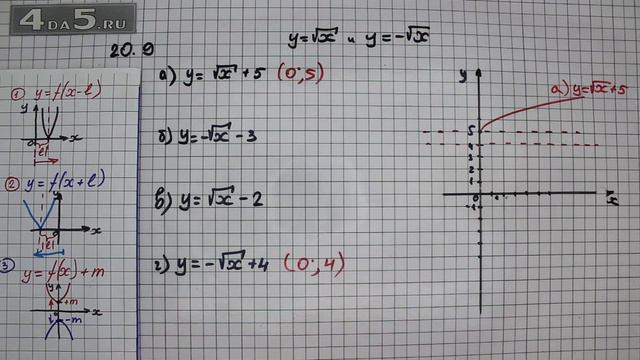 4DA5.RU
20.9
y=√x и y=-√x
① y=f(x-l)
y
x
0
|l|
② y=f(x+l)
y
x
0
|l|
③ y=f(x)+m
y
+m
x
0
-m
а) y=√x+5 (0;5)
б) y=-√x-3
в) y=√x-2
г) y=-√x+4 (0;4)
y
а) y=√x+5
5
4
3
2
1
0
-1
x